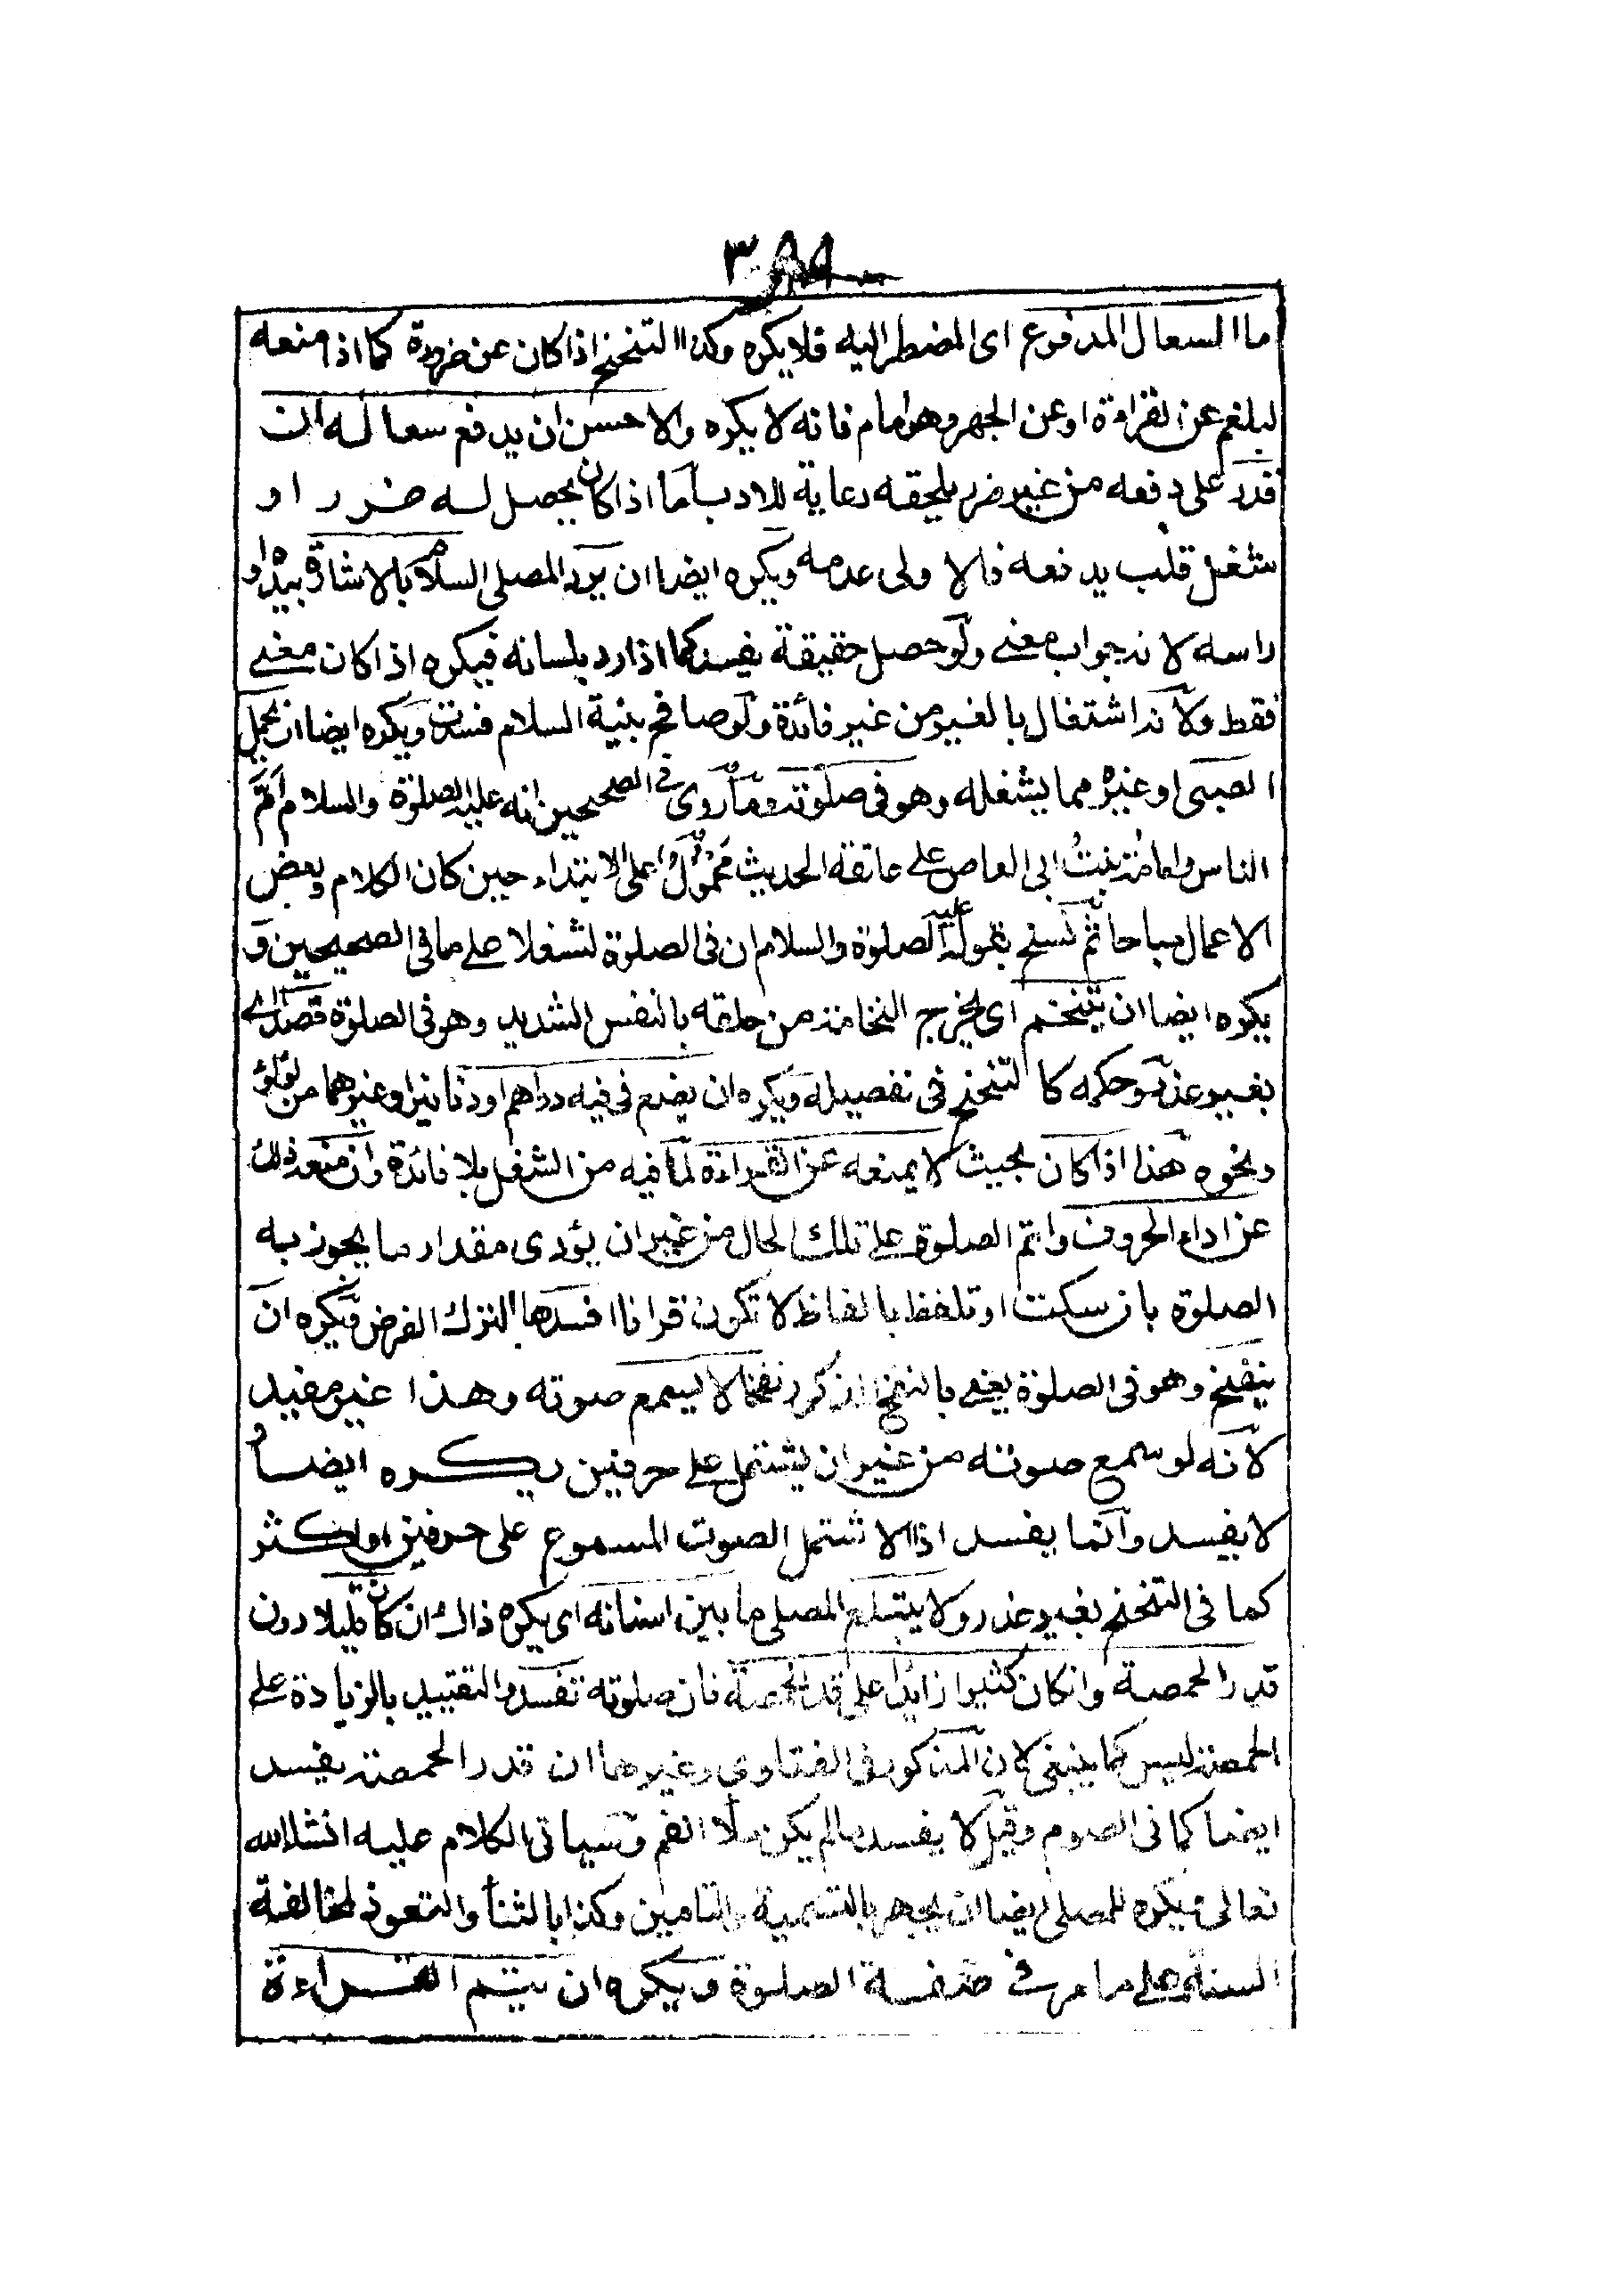 ٣٨٩
ما السعال المدفوع اى المضطر اليه فلا يكره وكذا التنحنح اذا كان عن ضرورة كما اذا منعه
البلغم عن القراءة او عن الجهر وهو امام فانه لا يكره والاحسن ان يدفع سعاله ان
قدر على دفعه من غير ضرر يلحقه رعاية للادب اما اذا كان يحصل له ضرر او
شغل قلب يدفعه فالاولى عدمه ويكره ايضا ان يرد المصلى السلام بالاشارة بيده او
راسه لانه جواب معنے ولو حصل حقيقة يفسد كما اذا رد بلسانه فيكره اذا كان معنے
فقط ولانه اشتغال بالغير من غير فائدة ولو صافح بنية السلام فسدت ويكره ايضا ان يحمل
الصبى او غيره مما يشغله وهو فى صلوته وما روى فى الصحيحين انه عليه الصلوة والسلام اَمَّ
الناس وامامة بنت ابى العاص على عاتقه الحديث محمول على الابتداء حين كان الكلام وبعض
الاعمال مباحا ثم نسخ بقوله عليه الصلوة والسلام ان فى الصلوة لشغلا على ما فى الصحيحين و
يكره ايضا ان يتنخم اى يخرج النخامة من حلقه بالنفس الشديد وهو فى الصلوة قصدا اے
بغير عذر وحكمه كالتنحنح فى تفصيله ويكره ان يضع فى فيه دراهم او دنانير او غيرهما من لؤلؤ
ونحوه هذا اذا كان بحيث لا يمنعه عن القراءة لما فيه من الشغل بلا فائدة وان منعه ذلك
عن اداء الحروف واتم الصلوة على تلك الحال من غير ان يؤدى مقدار ما يجوز به
الصلوة بان سكت او تلفظ بالفاظ لا تكون قرانا افسدها لترك الفرض ويكره ان
ينفخ وهو فى الصلوة يعنى بالنفخ المذكور نفخا لا يسمع صوته وهذا غير مفيد
لانه لو سمع صوته من غير ان يشتمل على حرفين يكره ايضا و
لا يفسد وانما يفسد اذا اشتمل الصوت المسموع على حرفين او اكثر
كما فى التنحنح بغير عذر ولا يبتلع المصلى ما بين اسنانه اى يكره ذلك ان كان قليلا دون
قدر الحمصة وان كان كثيرا زايدا على قدر الحمصة فان صلوته تفسد والتقييد بالزيادة على
الحمصة ليس كما ينبغى لان المذكور فى الفتاوى وغيرها ان قدر الحمصة يفسد
ايضا كما فى الصوم وقيل لا يفسد مالم يكن ملا الفم وسياتى الكلام عليه انشاء الله
تعالى ويكره للمصلى ايضا ان يجهر بالتسمية والتامين وكذا بالثناء والتعوذ لمخالفة
السنة على ما مر فى صفة الصلوة ويكره ان يتم القراءة